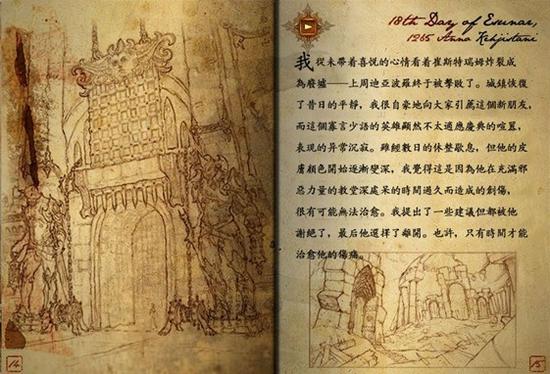 18th Day of Esunar,
1265 Anno Kehjistani
我從未帶着喜悦的心情看着崔斯特瑞姆炸裂成
為廢墟——上周迪亞波羅終于被擊敗了。城鎮恢復
了昔日的平靜，我很自豪地向大家引薦這個新朋友，
而這個寡言少語的英雄顯然不太適應慶典的喧囂，
表現的异常沉寂。雖經數日的休整歇息，但他的皮
膚顔色開始逐漸變深，我覺得這是因為他在充滿邪
惡力量的教堂深處呆的時間過久而造成的創傷，
很有可能無法治愈。我提出了一些建議但都被他
謝絶了，最后他選擇了離開。也許，只有時間才能
治愈他的傷痛。
14
15